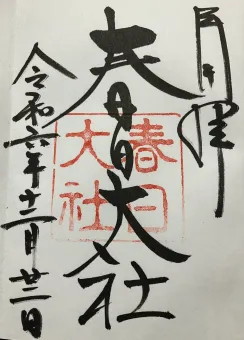 奉拝
春日大社
春日大社
令和六年十二月廿二日